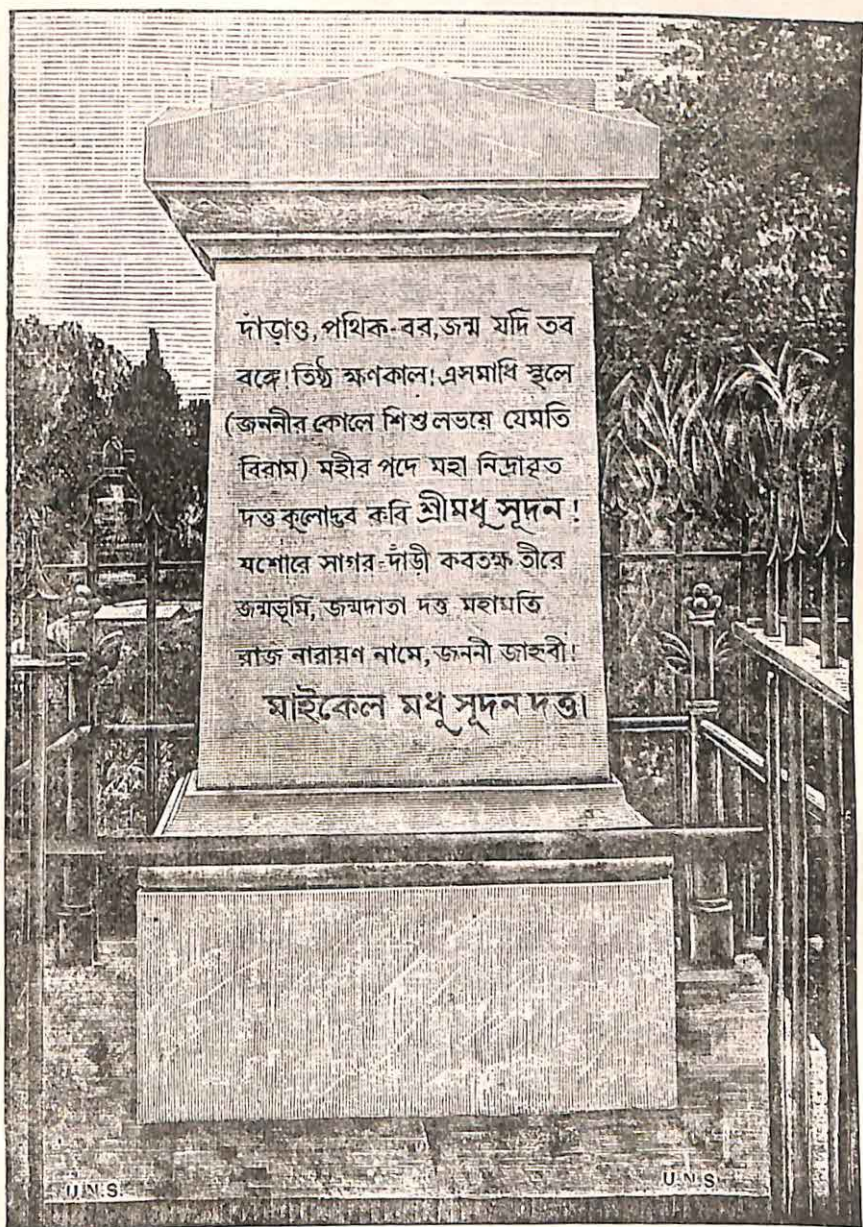 দাঁড়াও, পথিক-বর, জন্ম যদি তব
বঙ্গে! তিষ্ঠ ক্ষণকাল! এসমাধি স্থলে
(জননীর কোলে শিশু লভয়ে যেমতি
বিরাম) মহীর পদে মহা নিদ্রাবৃত
দত্ত কুলোদ্ভব কবি শ্রীমধুসূদন!
যশোরে সাগর-দাঁড়ী কবতক্ষ তীরে
জন্মভূমি, জন্মদাতা দত্ত মহামতি
রাজ নারায়ণ নামে, জননী জাহ্নবী!
মাইকেল মধুসূদন দত্ত।
U.N.S.
U.N.S.